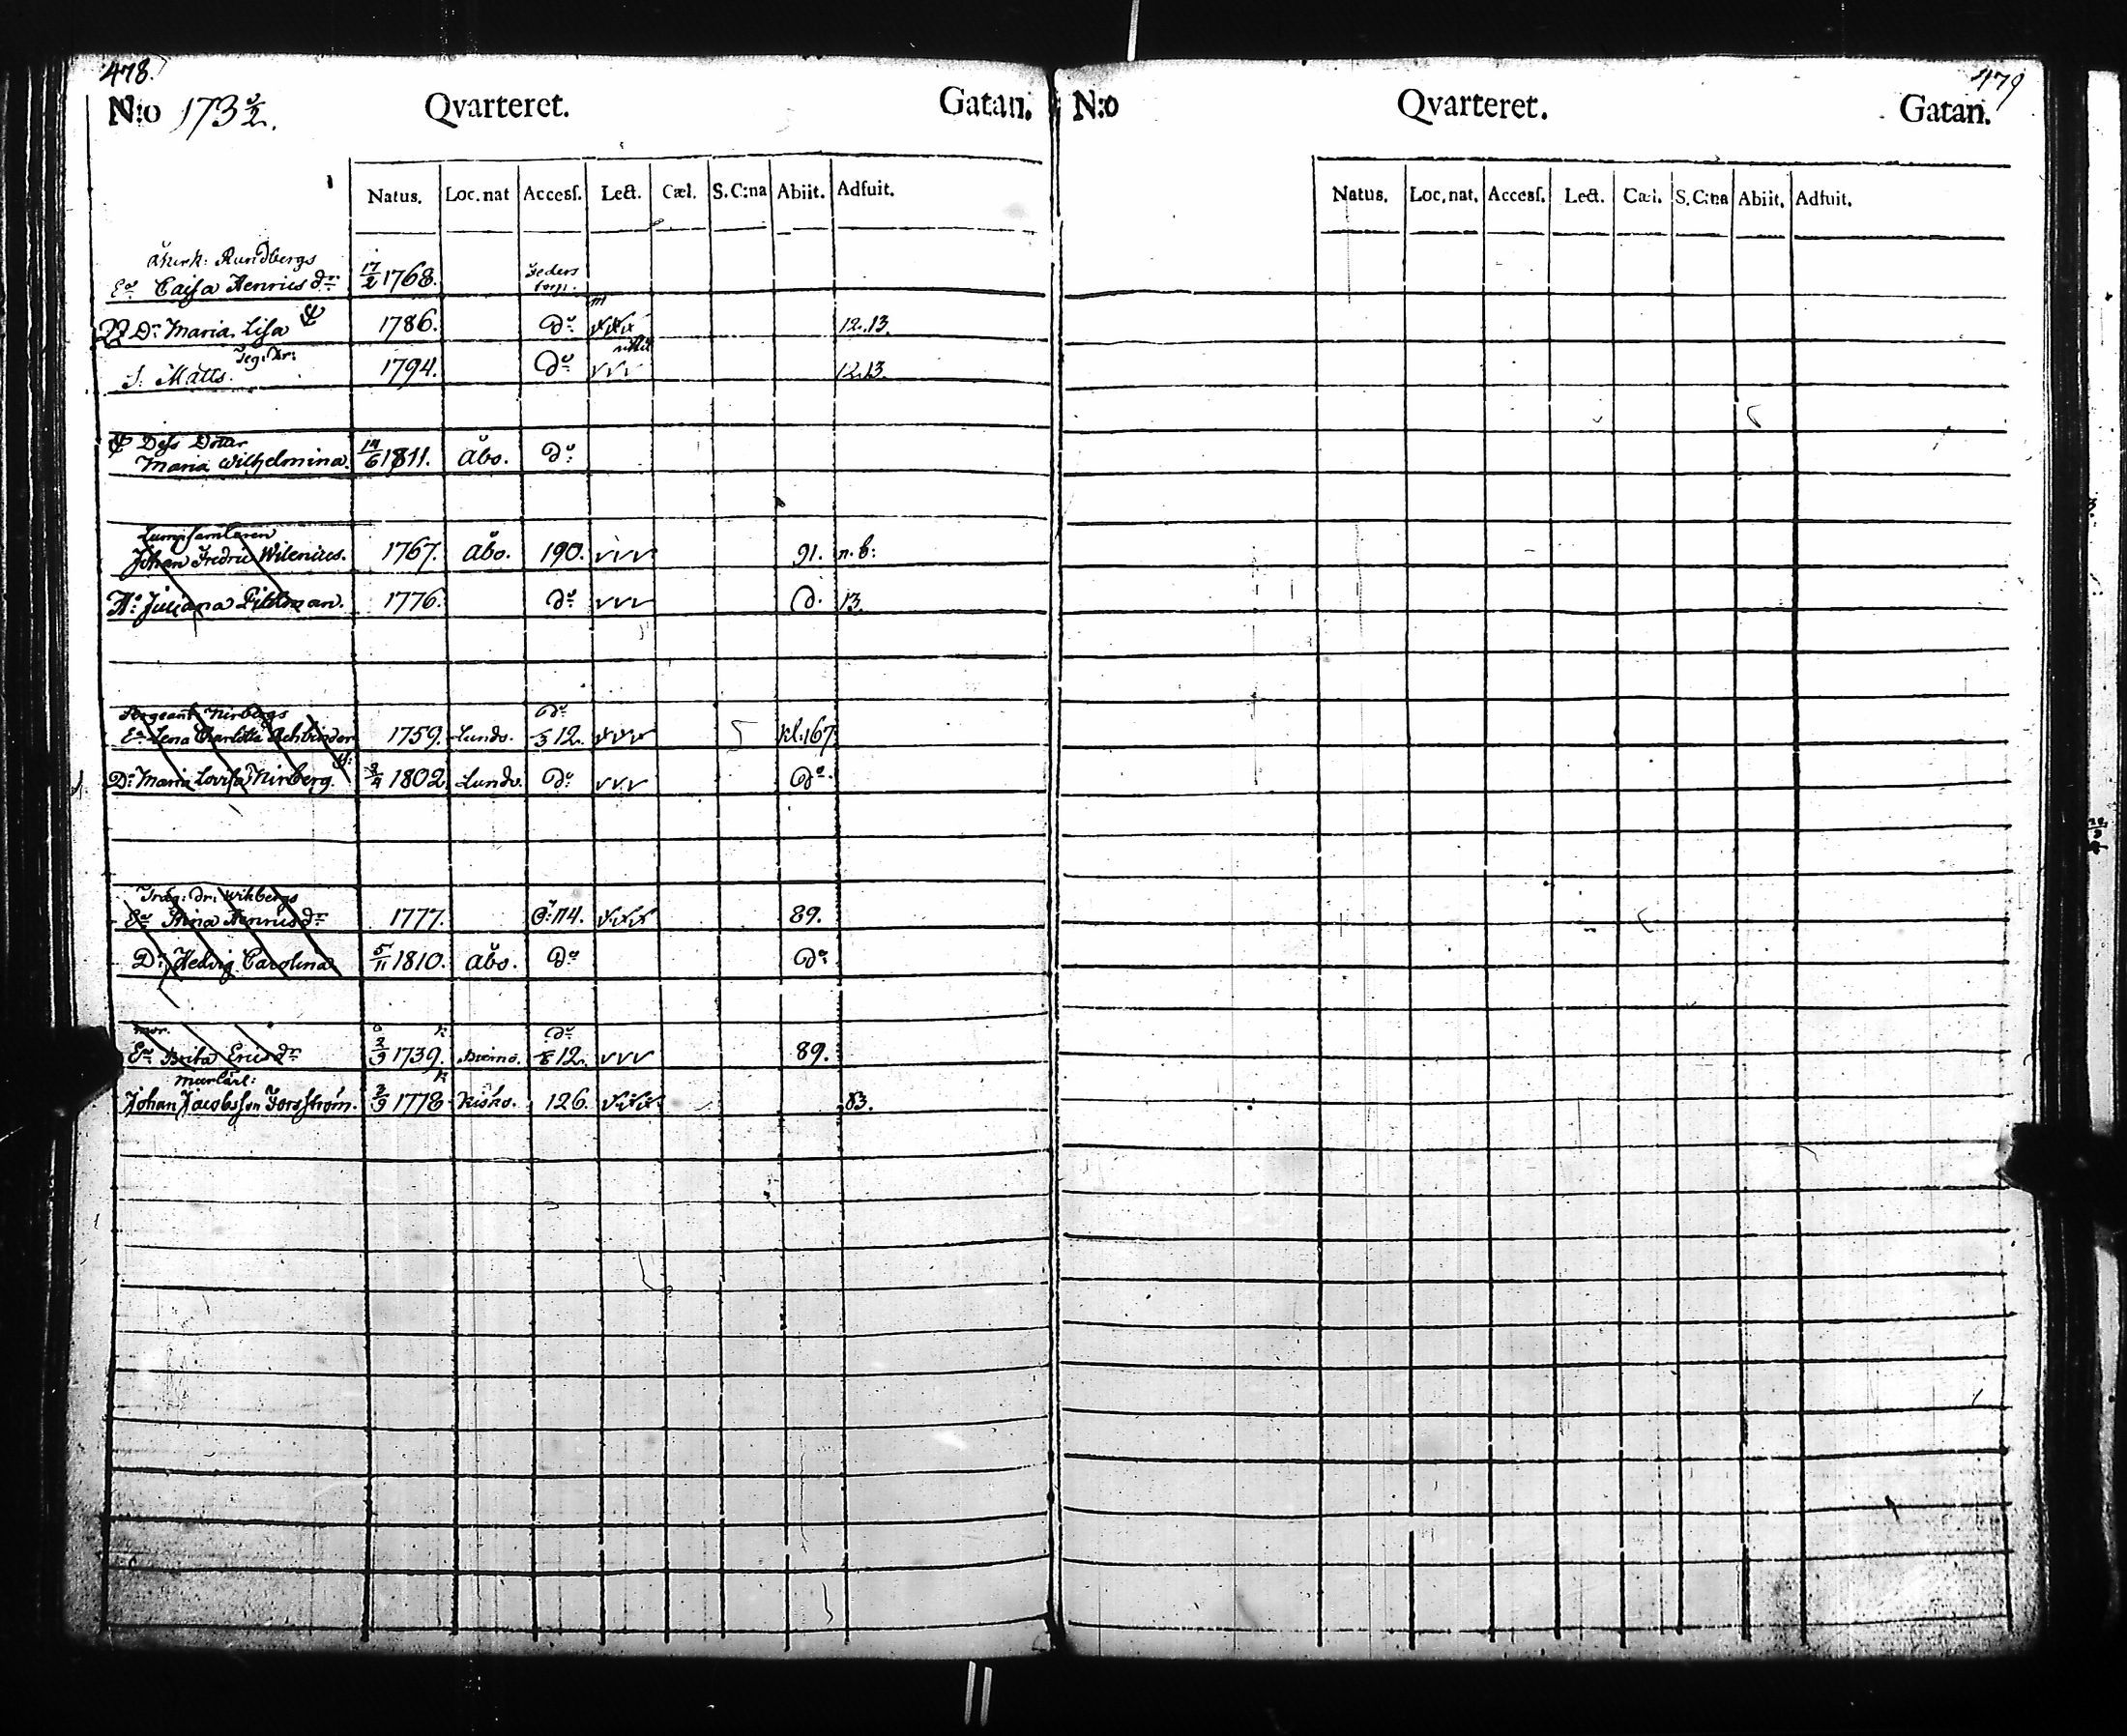 478.
N:o 173 2/2. Qvarteret. Gatan.
Natus. Loc. nat Accesſ. Lect. Cæl. S. C:na Abiit. Adfuit.
Åkerk: Rundbergs
Ea Caisa Henricsdr 17/2 1768.
Dr Maria Lisa 1786. do 12.13.
S. Matts. 1794. do vvv 12.13.
Dess Dotter
Maria Wilhelmina. 14/6 1811. Åbo. do
Lumpsamlaren
Johan Fredric Wilenius. 1767. Åbo. 190. vvv 91. n. b:
H: Juliana 1776. do vvv d. 13.
Sergeant Nirbergs do
Ea Lena Charlotta 1759. Lundo. 12. vvv kl. 167
Dr Maria Lovisa Nirberg. 1802 Lundo. do vvv do
Träg: dr: Wikbergs
Ea Stina Henricsdr 1777. 114. 89.
Dr Hedvig Carolina 5/11 1810. Åbo. do do
mor. do
Ea Brita Ericsdr 2/3 1739. 12. vvv 89.
Murkarl:
Johan Jacobsson Forsström. 3/9 1778 Kisko. 126. 83.
479
N:o Qvarteret. Gatan.
Natus. Loc. nat. Accesſ. Lect. Cæl. S. C:na Abiit. Adfuit.